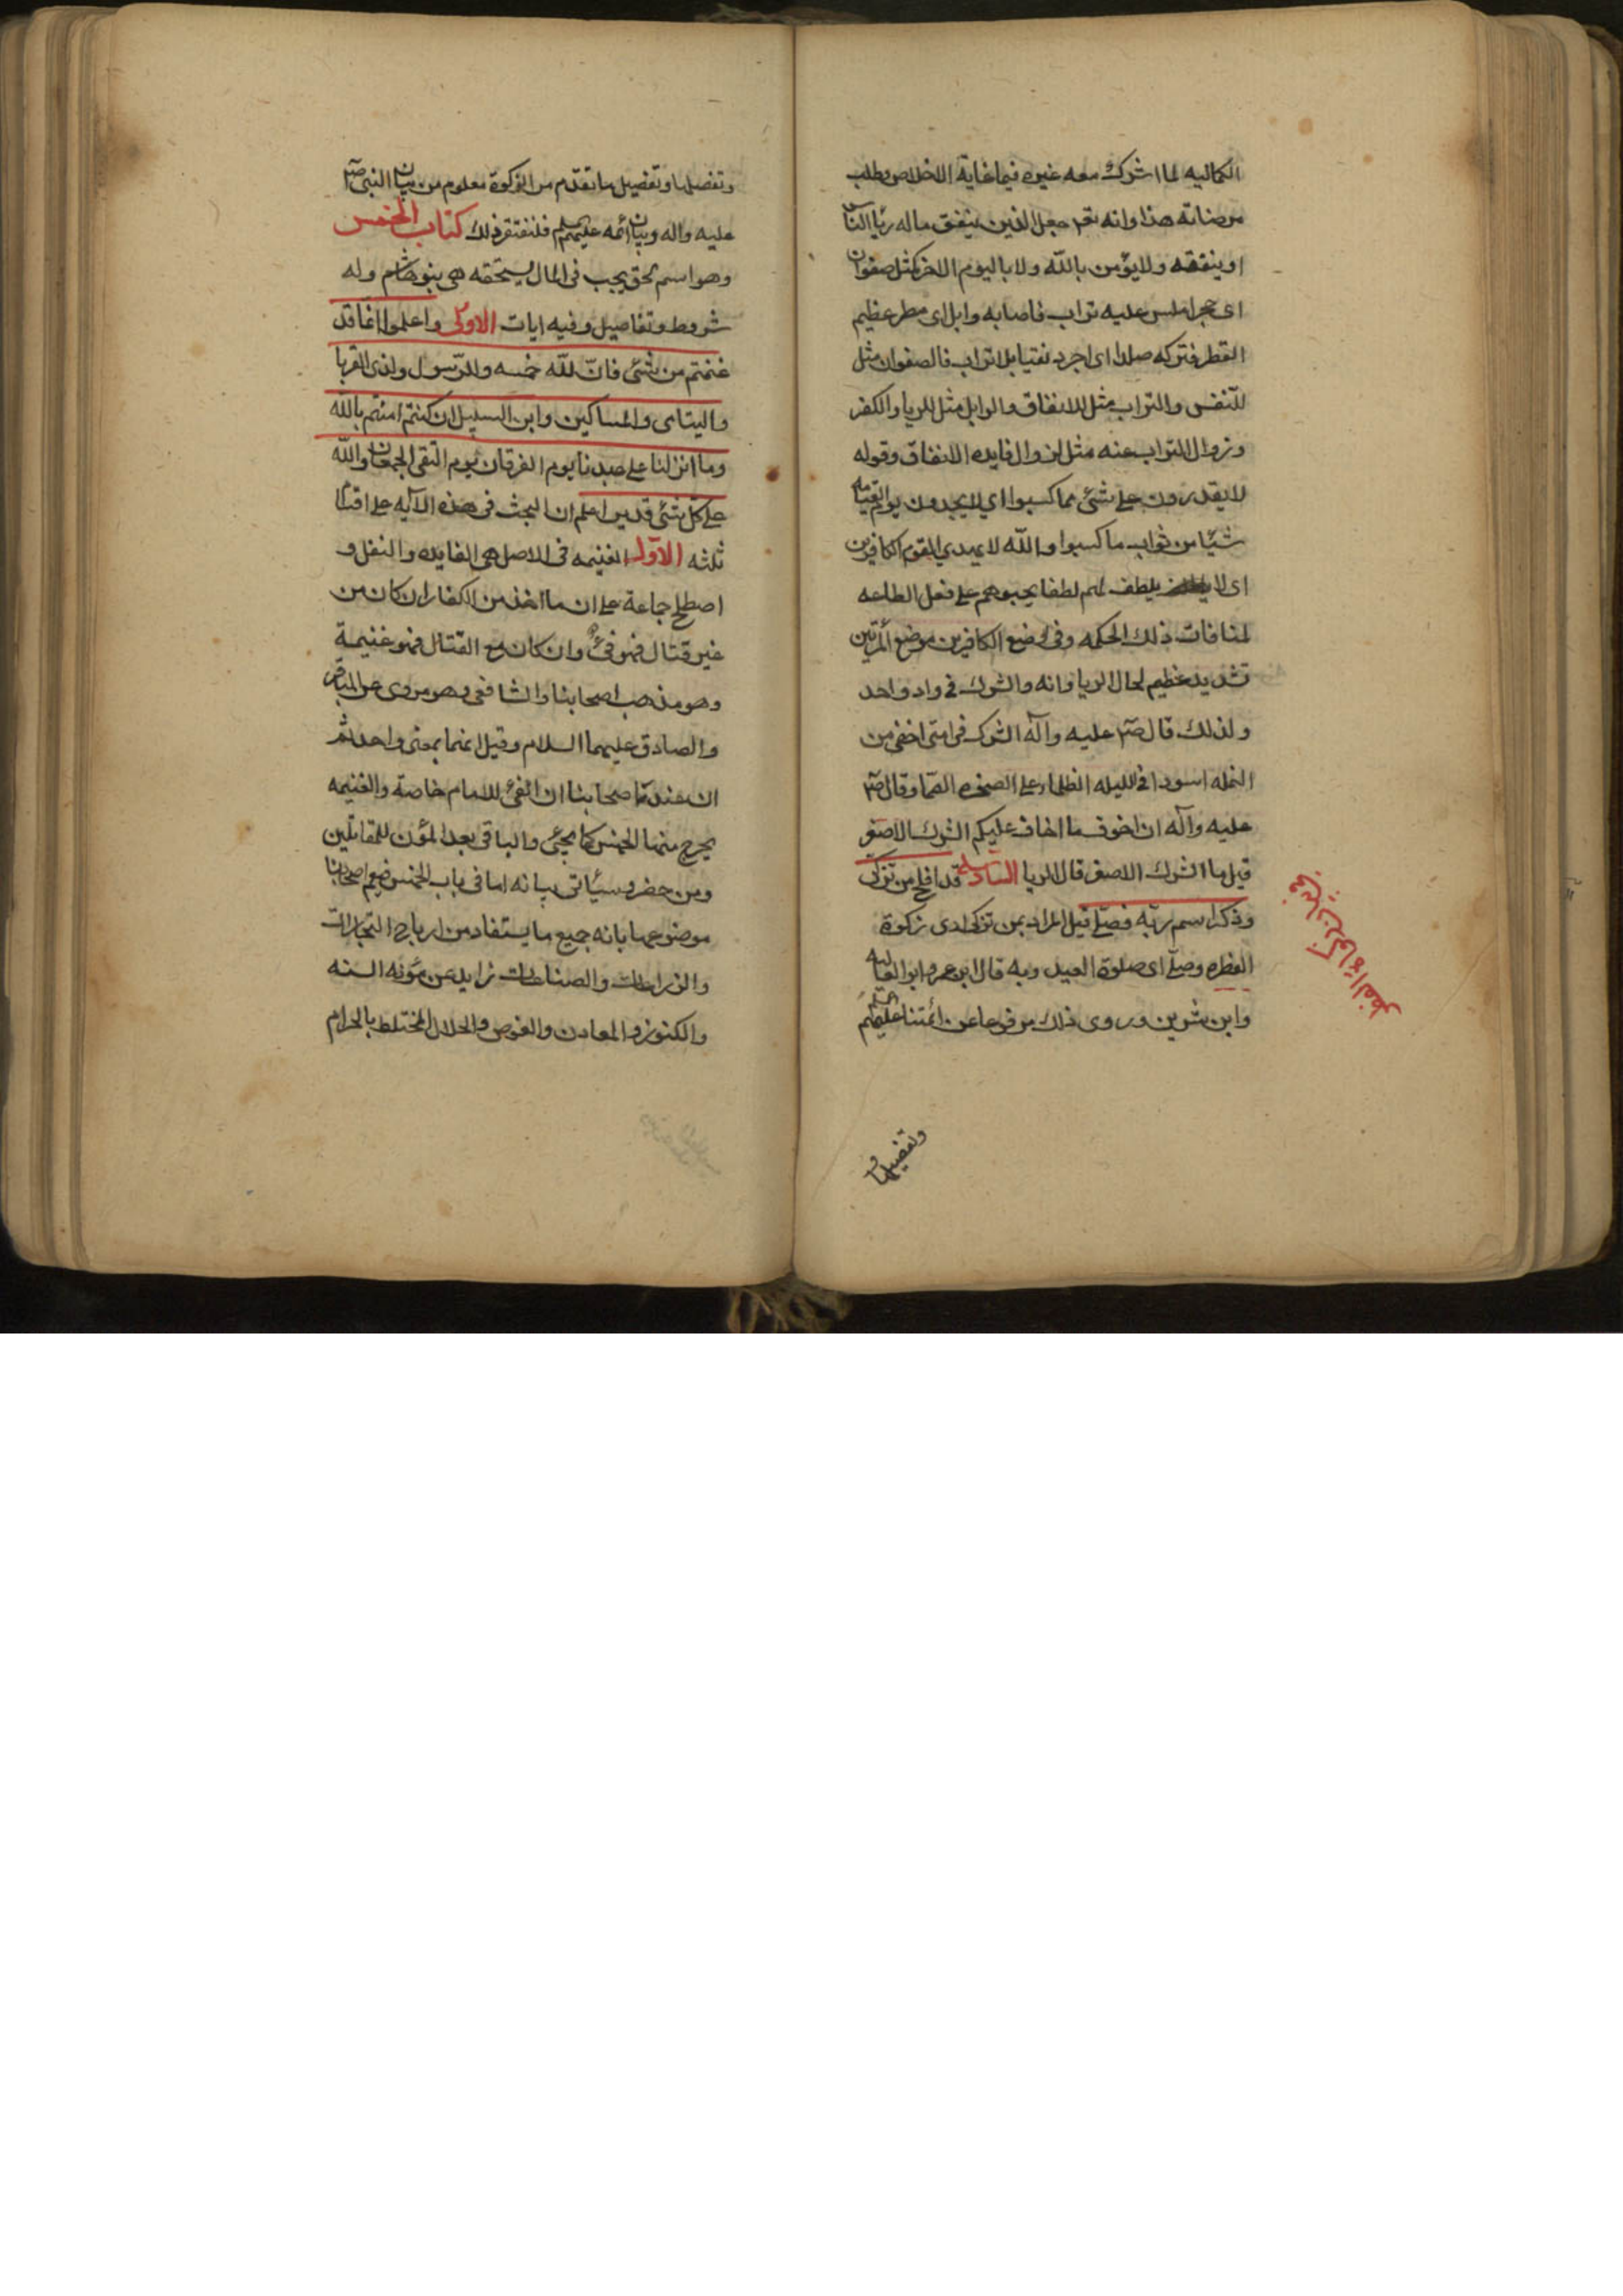 الكماليه لما اشرك معه غيره فيما غاية الاخلاص وطلب
مرضاته هذا وانه تعم جعل الذين ينفق ماله رياء الناس
او ينفقه ولا يؤمن بالله ولا باليوم الاخر كمثل صفوان
اى حجر املس عليه تراب فاصابه وابل اى مطر عظيم
القطر فتركه صلدا اى اجرد نقيا بلا تراب فالصفوان مثل
للنفس والتراب مثل للانفاق والوابل مثل للريا والكفر
وزوال التراب عنه مثل لزوال فايده الانفاق وقوله
لا يقدرون على شئ مما كسبوا اي لا يجدون يوم القيمه
شيئا من ثواب ما كسبوا والله لا يهدي القوم الكافرين
اى لا يلطف لهم لطفا يجبرهم على فعل الطاعه
لمنافات ذلك الحكمه وفى وضع الكافرين موضع المرتين
تشديد عظيم لحال الريا وانه والشرك فى واد واحد
ولذلك قال صم عليه وآله الشرك فى امتى اخفى من
النمله اسودا فى الليله الظلماء على الصخره الصما وقال صم
عليه وآله ان اخوف ما اخاف عليكم الشرك الاصغر
قيل ما الشرك الاصغر قال الريا السادسة قد افلح من تزكى
وذكر اسم ربه فصلى قيل المراد بمن تزكى ادى زكوة
الفطره وصلى اى صلوة العيد وبه قال ابن عمر وابو العاليه
وابن شرين وروى ذلك مرفوعا عن ائمتنا عليهم السلم
وتفصيلها و
وتفصيلها وتفصيل ما تقدم من الزكوة معلوم من بيان النبى صم
عليه واله وبيان ائمه عليهم السلم فلنقتفر ذلك كتاب الخمس
وهو اسم لحق يجب فى المال يستحقه هى بنو هاشم وله
شروط وتفاصيل وفيه ايات الاولى واعلموا انما قد
غنمتم من شئ فان لله خمسه وللرسول ولذى القربا
واليتامى والمساكين وابن السبيل ان كنتم امنتم بالله
وما انزلنا على عبدنا يوم الفرقان يوم التقى الجمعان والله
على كل شئ قدير اعلم ان البحث فى هذه الآيه على اقسام
ثلثه الاول الغنيمه فى الاصل هى الفايده والنفل و
اصطلح جماعة على ان ما اخذ من الكفار ان كان من
غير قتال فهو فئ وان كان مع القتال فهو غنيمة
وهو مذهب اصحابنا والشافعى وهو مروى عن الباقر
والصادق عليهما السلام وقيل انهما بمعنى واحد ثم
ان عند اصحابنا ان الفئ للامام خاصة والغنيمه
يخرج منها الخمس كما يجئ والباقى بعد المؤن للمقاتلين
ومن حضر وسياتى بيانه اما فى باب الخمس فيعم اصحابنا
موضوعها بانه جميع ما يستفاد من ارباح التجارات
والزراعات والصناعات زايد عن مؤنه السنه
والكنوز والمعادن والغوص والحلال المختلط بالحرام